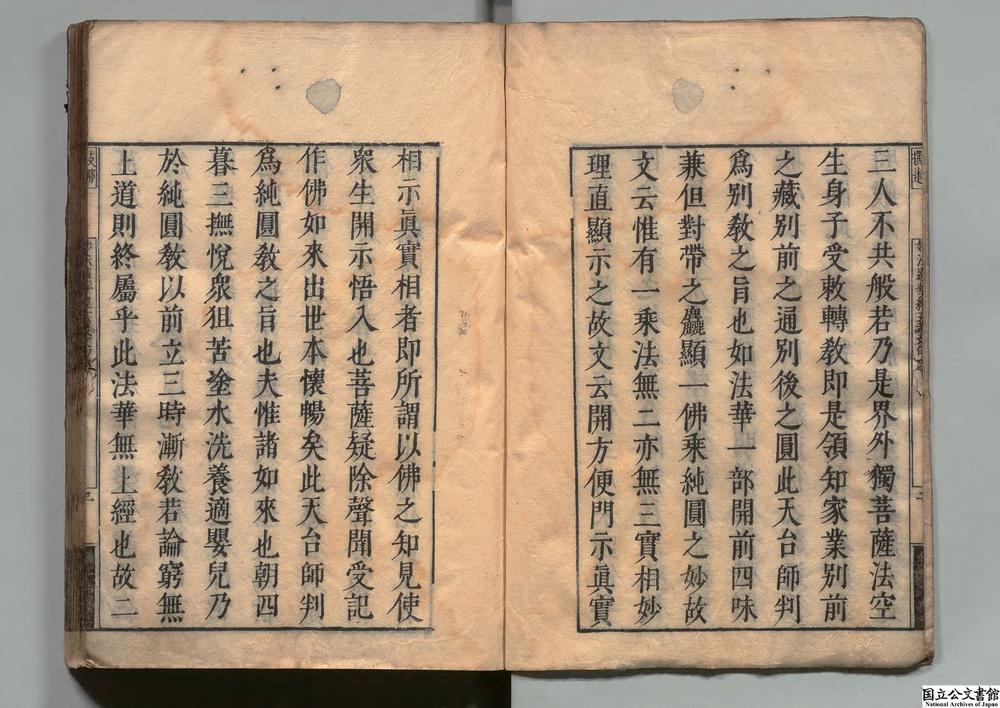 三人不共般若乃是界外獨菩薩法空
生身子受敕轉教即是領知家業別前
之藏別前之通別後之圓此天台師判
爲別教之旨也如法華一部開前四味
兼但對帶之麤顯一佛乘純圓之妙故
文云惟有一乘法無二亦無三實相妙
理直顯示之故文云開方便門示眞實
相示眞實相者即所謂以佛之知見使
衆生開示悟入也菩薩疑除聲聞受記
作佛如來出世本懷暢矣此天台師判
爲純圓教之旨也夫惟諸如來也朝四
暮三撫悅衆狙苦塗水洗養適嬰兒乃
於純圓教以前立三時漸教若論窮無
上道則終屬乎此法華無上經也故二
国立公文書館
National Archives of Japan